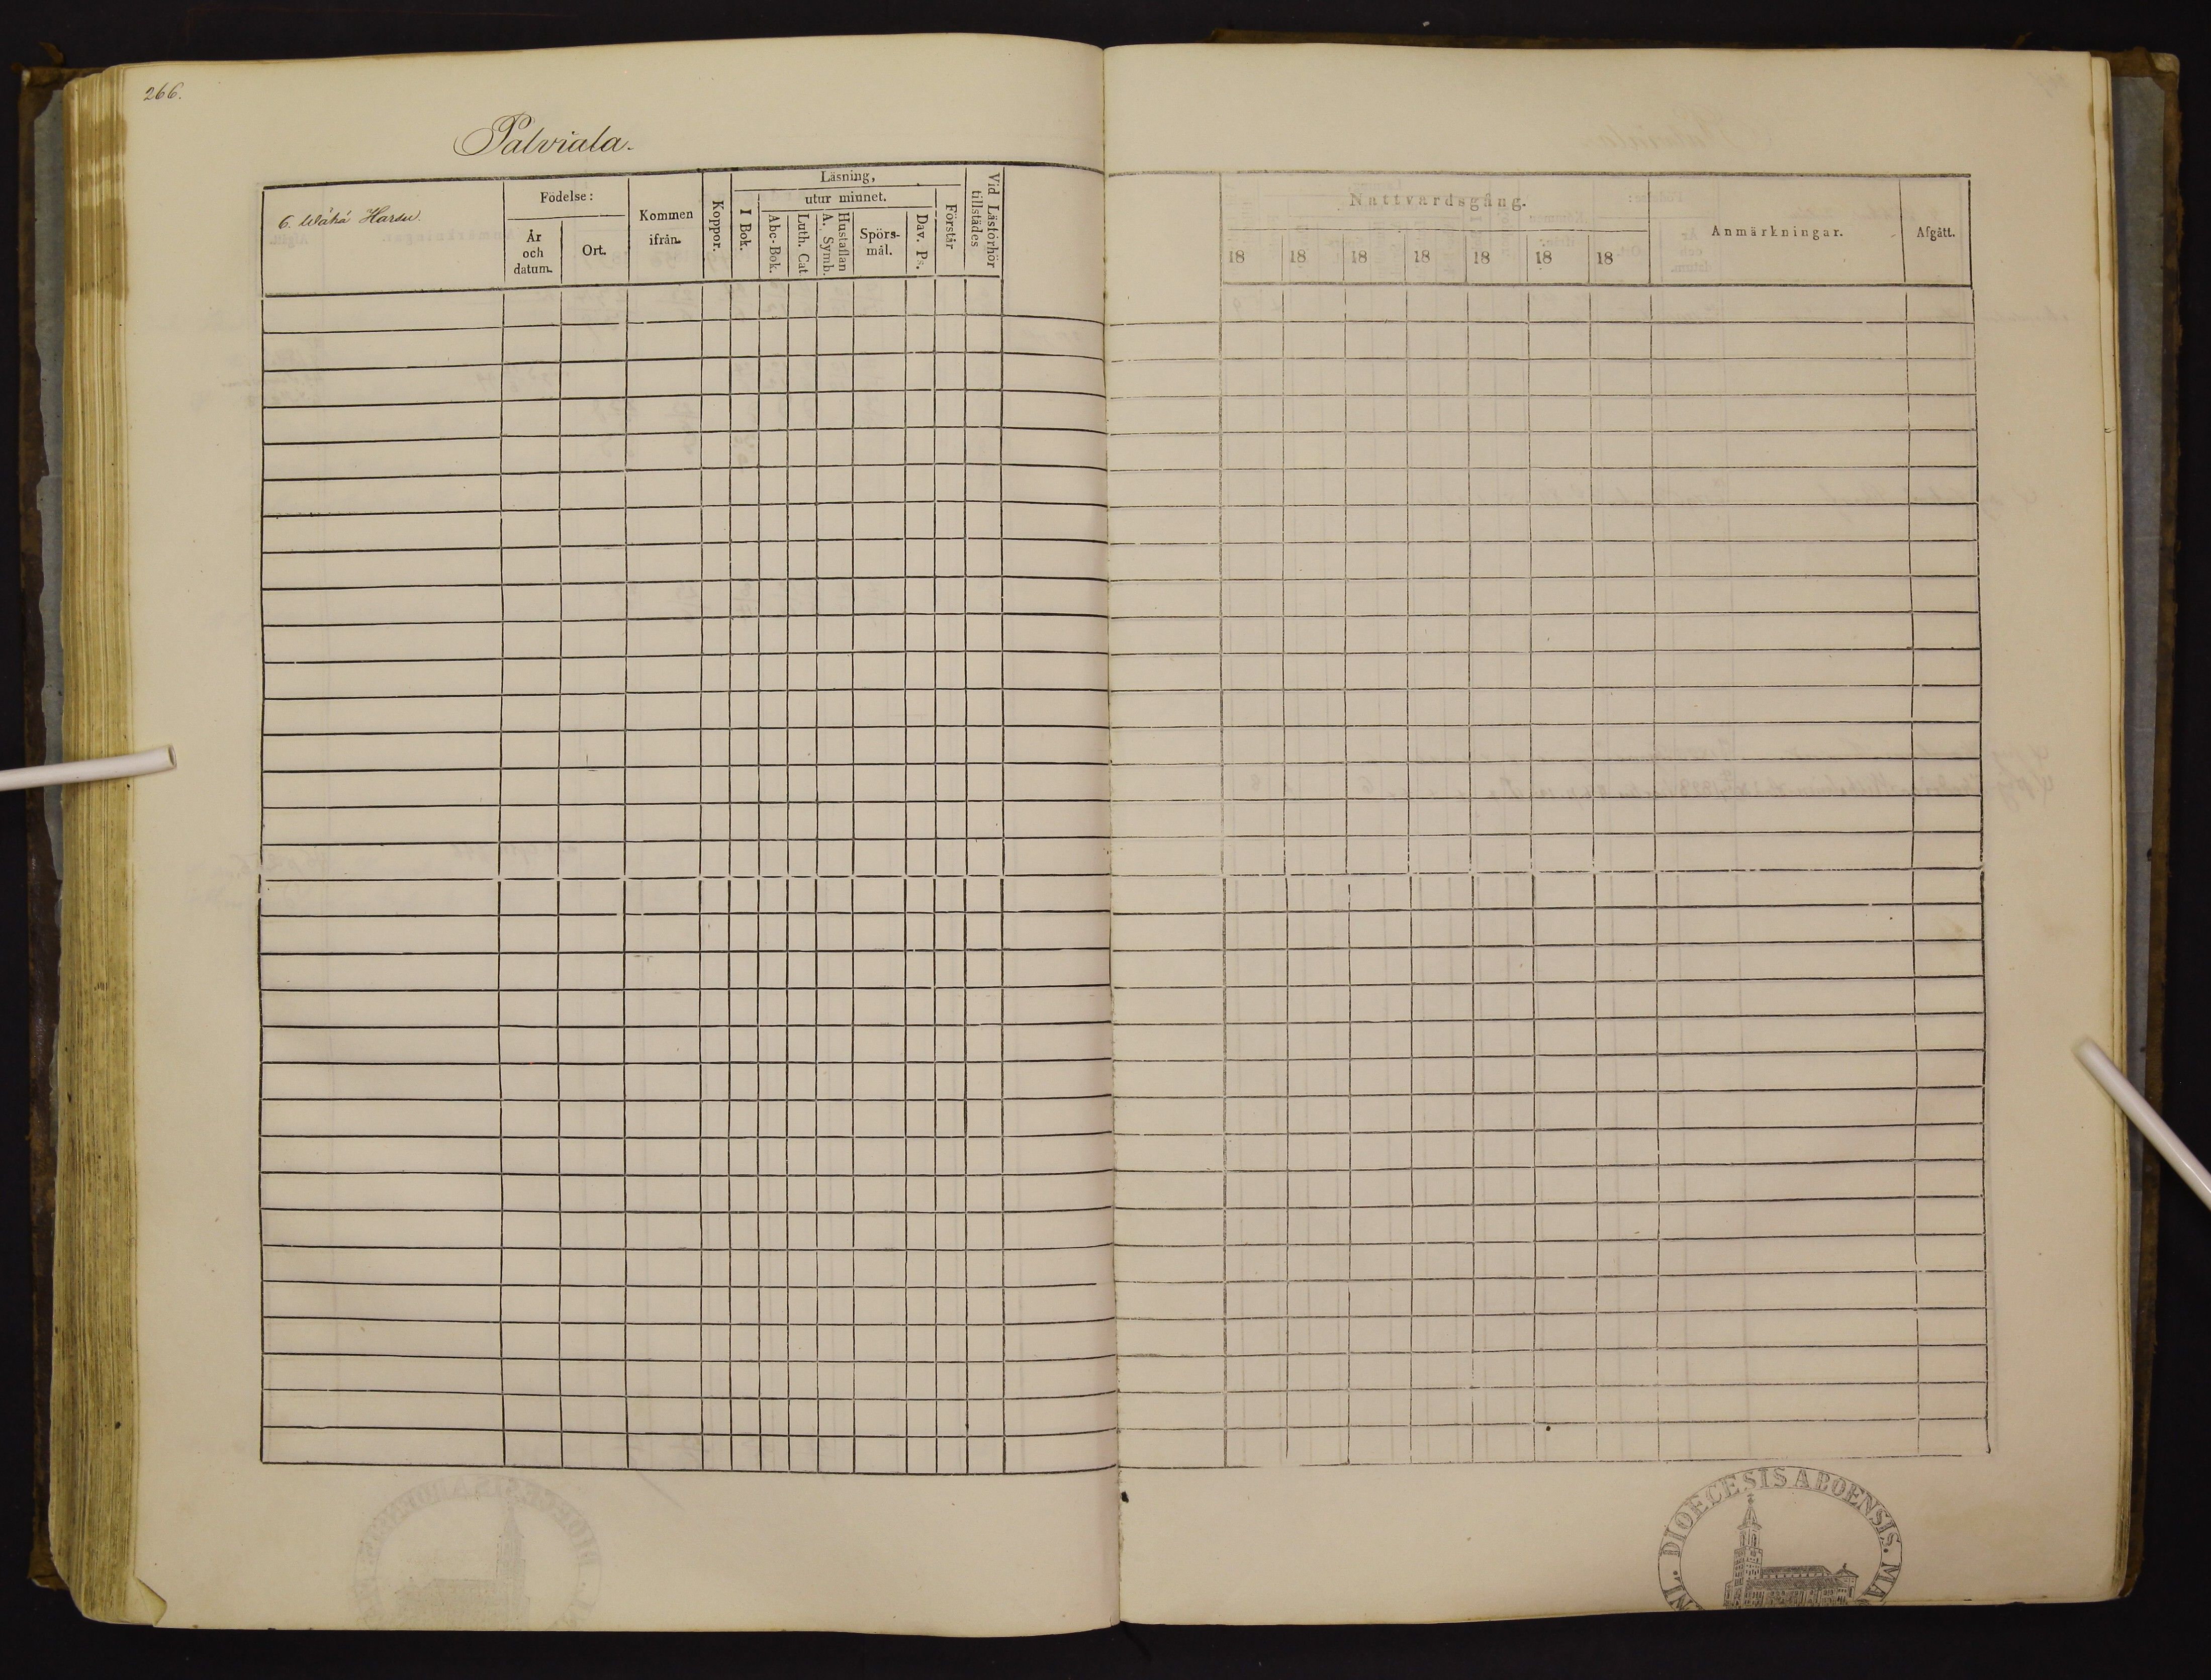 266.
Palviala.
6. Wähä Harsu.
Födelse:
År och datum.
Ort.
Kommen ifrån.
Koppor.
Läsning,
I Bok.
utur minnet.
Abc-Bok.
Luth. Cat
A. Symb. Hustaflan
Spörs-mål.
Dav. Ps.
Förstår
Vid Läsförhör tillstädes
Nattvardsgång.
18 18 18 18 18 18 18
Anmärkningar.
Afgått.
DIOECESIS ABOENSIS. MA